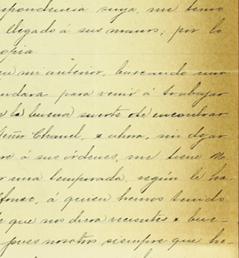 spondencia suya, me temo
llegado á sus manos, por lo
opia
en mi anterior, buscando una
para venir á trabajar
la buena suerte de encontrar
Señor Chanel, y ahora, sin dejar
á sus órdenes, me tiene
una temporada, según le
á quien hemos tenido
que nos diera recientes
pues nosotros siempre que he